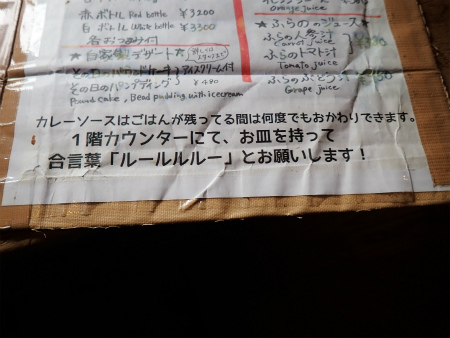 赤ボトル Red bottle ¥3200
白ボトル White bottle ¥3300
各おつまみ付
★自家製デザート★
その日のパウンドケーキ アイスクリーム付
その日のパンプディング ¥480
Pound cake, Bead pudding with icecream
orange juice
★ふらののジュース★
ふらの人参汁
Carrot juice
ふらのトマト汁
Tomato juice
ふらのぶどう汁
Grape juice
カレーソースはごはんが残ってる間は何度でもおかわりできます。
1階カウンターにて、お皿を持って
合言葉「ルールルルー」とお願いします!